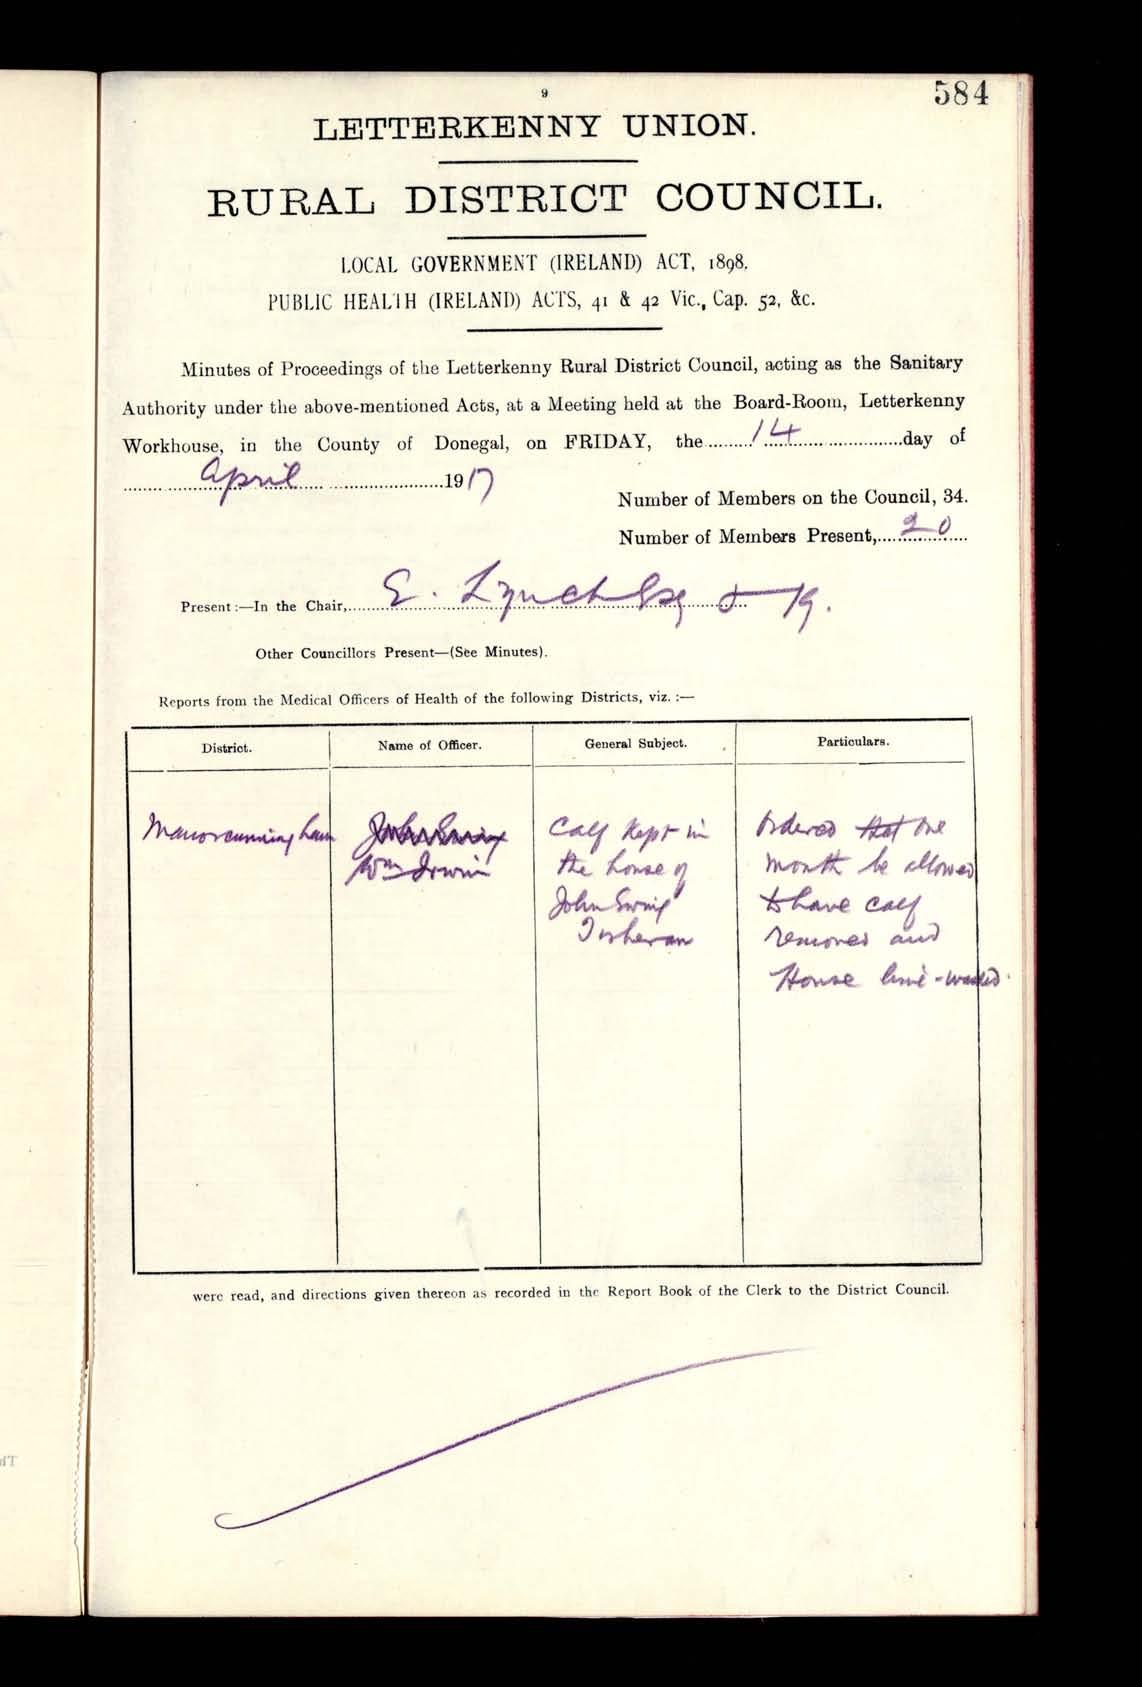 584
9
LETTERKENNY UNION.
RURAL DISTRICT COUNCIL.
LOCAL GOVERNMENT (IRELAND) ACT, 1898.
PUBLIC HEALTH (IRELAND) ACTS, 41 & 42 Vic., Cap. 52, &c.
Minutes of Proceedings of the Letterkenny Rural District Council, acting as the Sanitary
Authority under the above-mentioned Acts, at a Meeting held at the Board-Room, Letterkenny
Workhouse, in the County of Donegal, on FRIDAY, the 14 day of
April 1917
Number of Members on the Council, 34.
Number of Members Present, 20
Present :—In the Chair, E. Lynch Esq & 19.
Other Councillors Present—(See Minutes).
Reports from the Medical Officers of Health of the following Districts, viz. :—
District. Name of Officer. General Subject. Particulars.
Manorcunningham
John Ewing
Wm Irwin
Calf kept in
the house of
John Ewing
Ordered that one
month be allowed
to have calf
removed and
House lime-washed.
were read, and directions given thereon as recorded in the Report Book of the Clerk to the District Council.